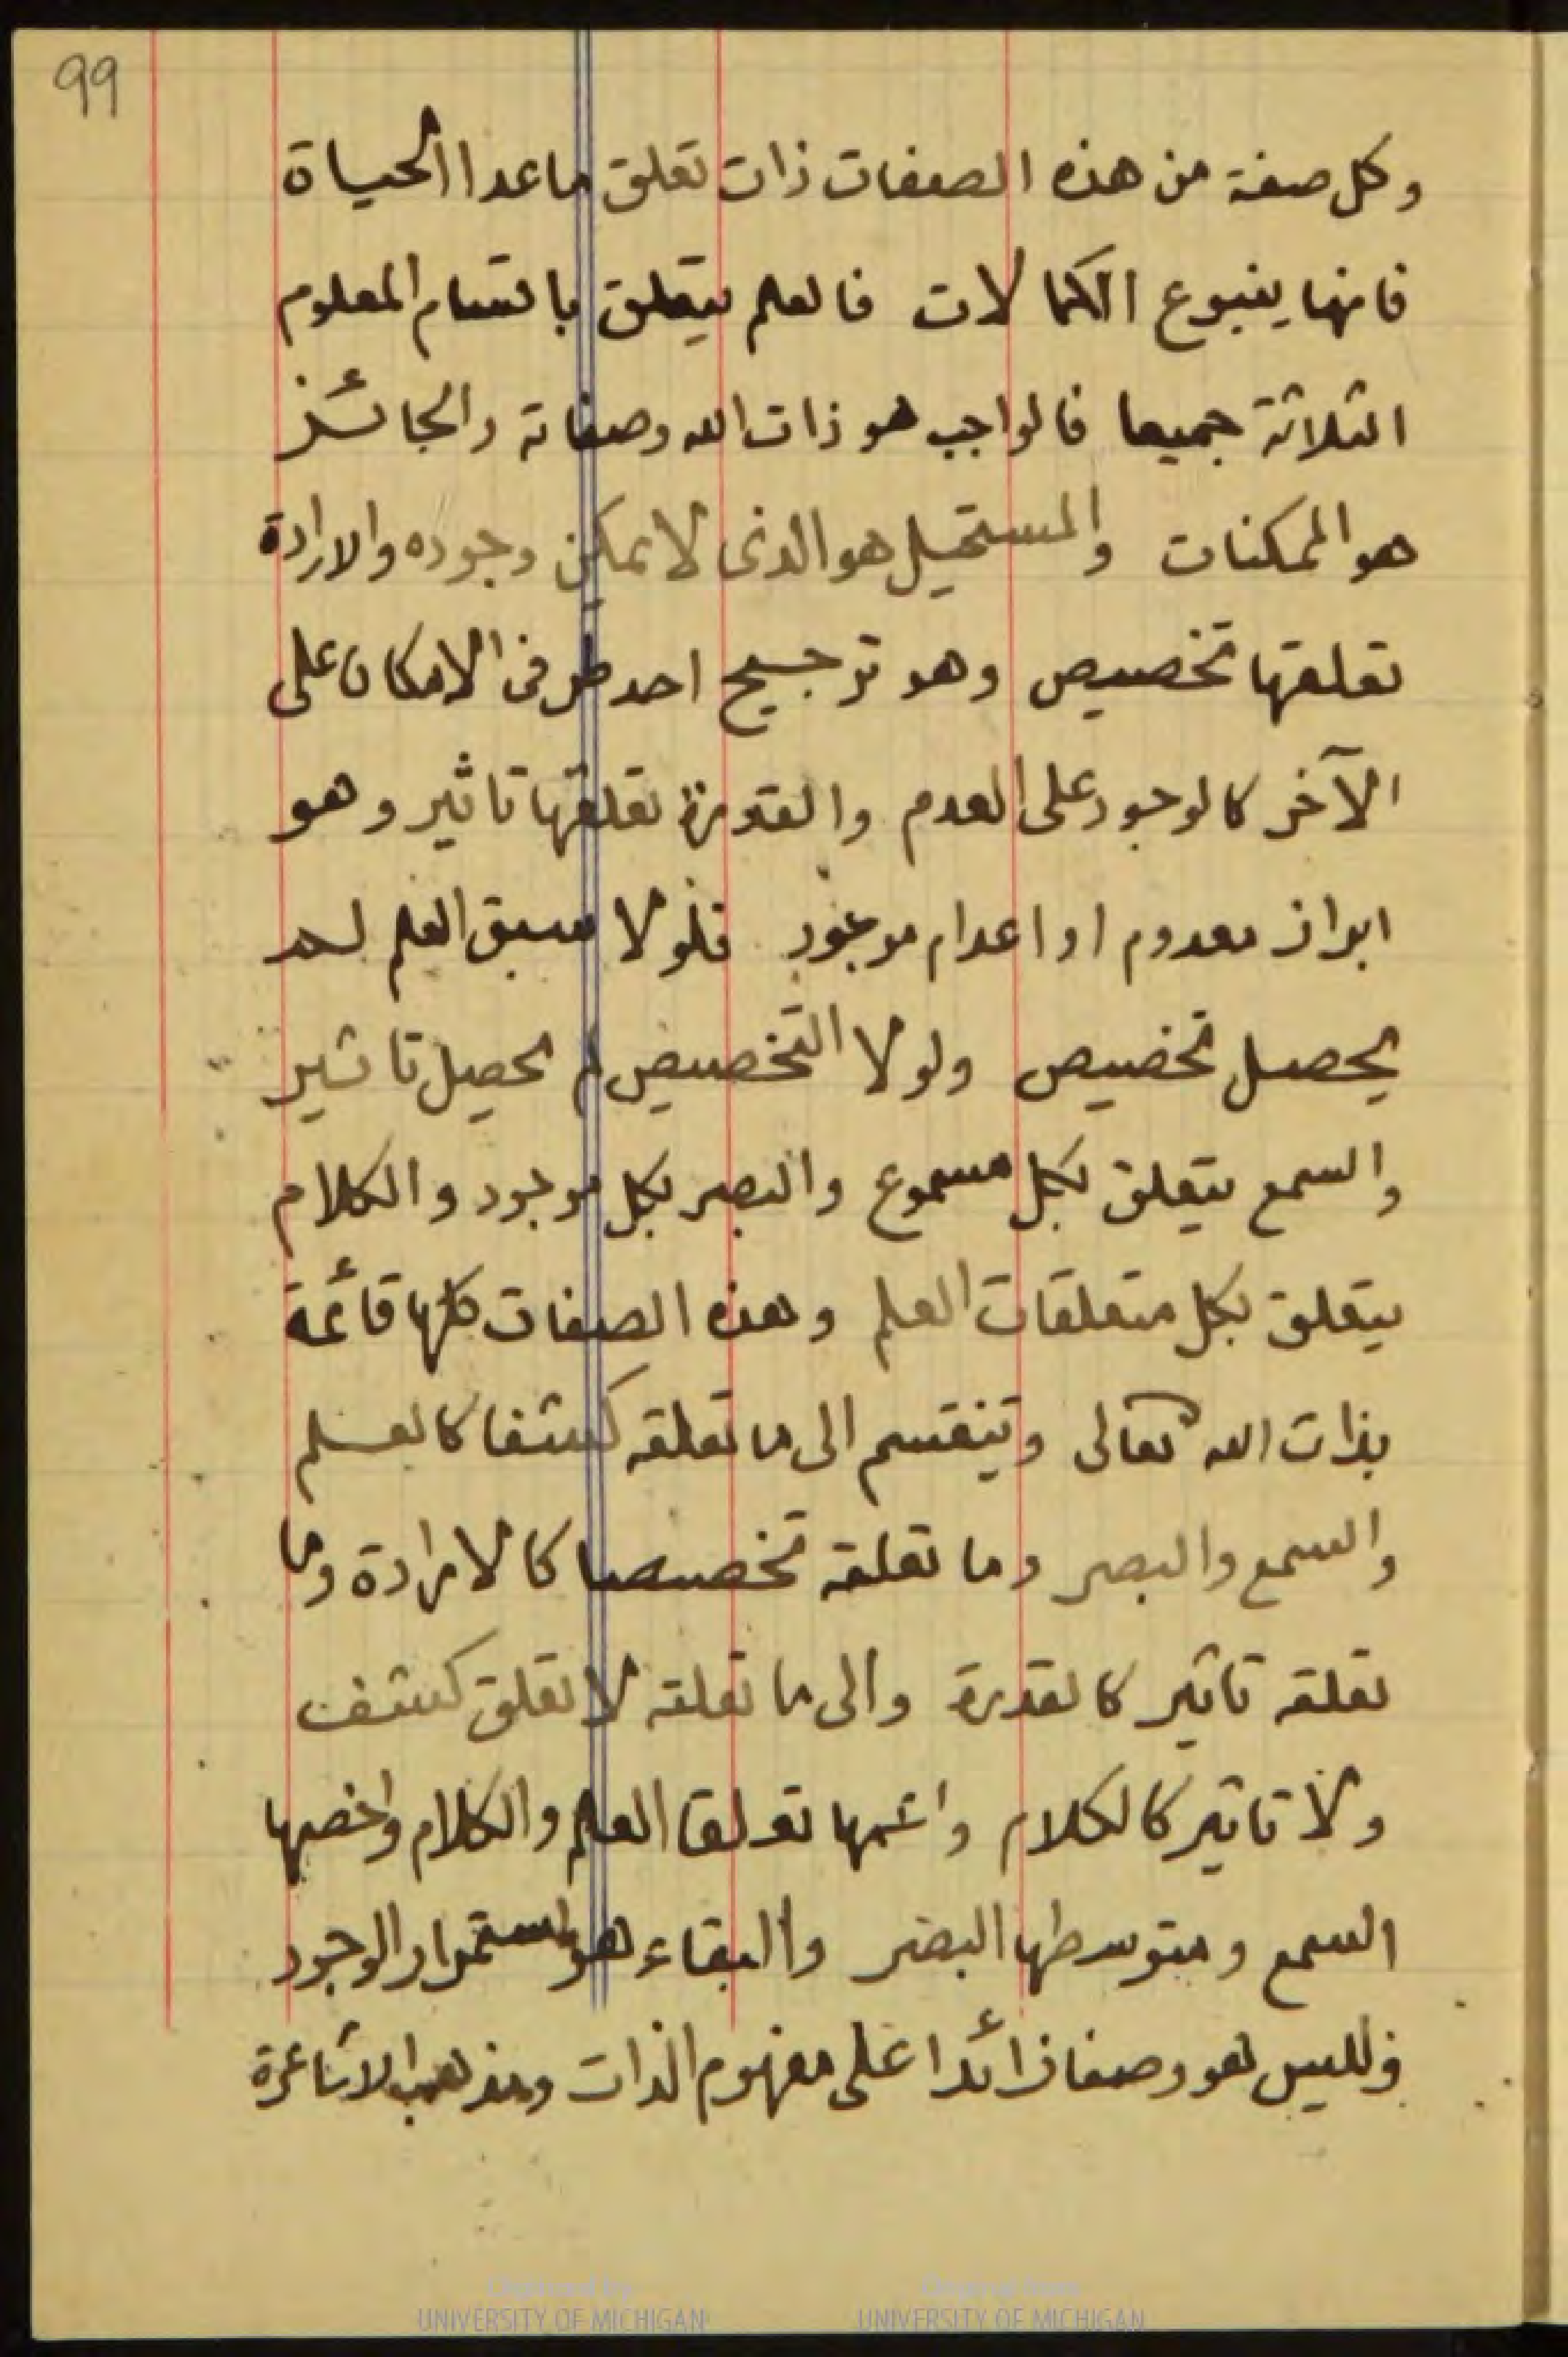 99
وكل صفة من هذه الصفات ذات تعلق ماعدا الحياة
فانها ينبوع الكمالات فالعلم يتعلق باقسام المعلوم
الثلاثة جميعا فالواجب هو ذات الله وصفاته والجائز
هو الممكنات والمستحيل هو الذى لا يمكن وجوده والارادة
تعلقها تخصيص وهو ترجيح احد طرفى الامكان على
الآخر كالوجود على العدم والقدرة تعلقها تاثير وهو
ابراز معدوم او اعدام موجود فلولا سبق العلم لم
يحصل تخصيص ولولا التخصيص لم يحصل تاثير
والسمع يتعلق بكل مسموع والبصر بكل موجود والكلام
يتعلق بكل متعلقات العلم وهذه الصفات كلها قائمة
بذات الله تعالى وتنقسم الى ما تعلقه كشفا كالعلم
والسمع والبصر وما تعلقه تخصيصا كالارادة وما
تعلقه تاثير كالقدرة والى ما تعلقه لا تعلق كشف
ولا تاثير كالكلام واعمها تعلقا العلم والكلام واخصها
السمع ومتوسطها البصر والبقاء هو استمرار الوجود
وليس هو وصفا زائدا على مفهوم الذات ومذهب الاشاعرة
Digitized by
UNIVERSITY OF MICHIGAN
Original from
UNIVERSITY OF MICHIGAN